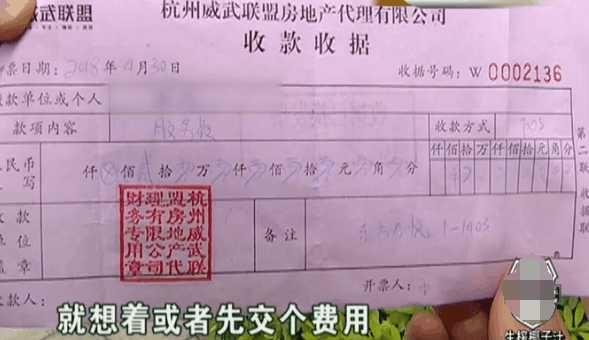 威武联盟
杭州威武联盟房地产代理有限公司
收款收据
票日期：2018年4月30日
收据号码：W 0002136
款单位或个人
款项内容 服务费
收款方式 POS
民币
写
仟 佰 拾 万 仟 佰 拾 元 角 分
仟佰拾万仟佰拾元角分
第二联 收据联
收款
单位
盖章
杭州威武联盟房地产代理有限公司财务专用章
备注
1-1403
款人：
开票人：
就想着或者先交个费用